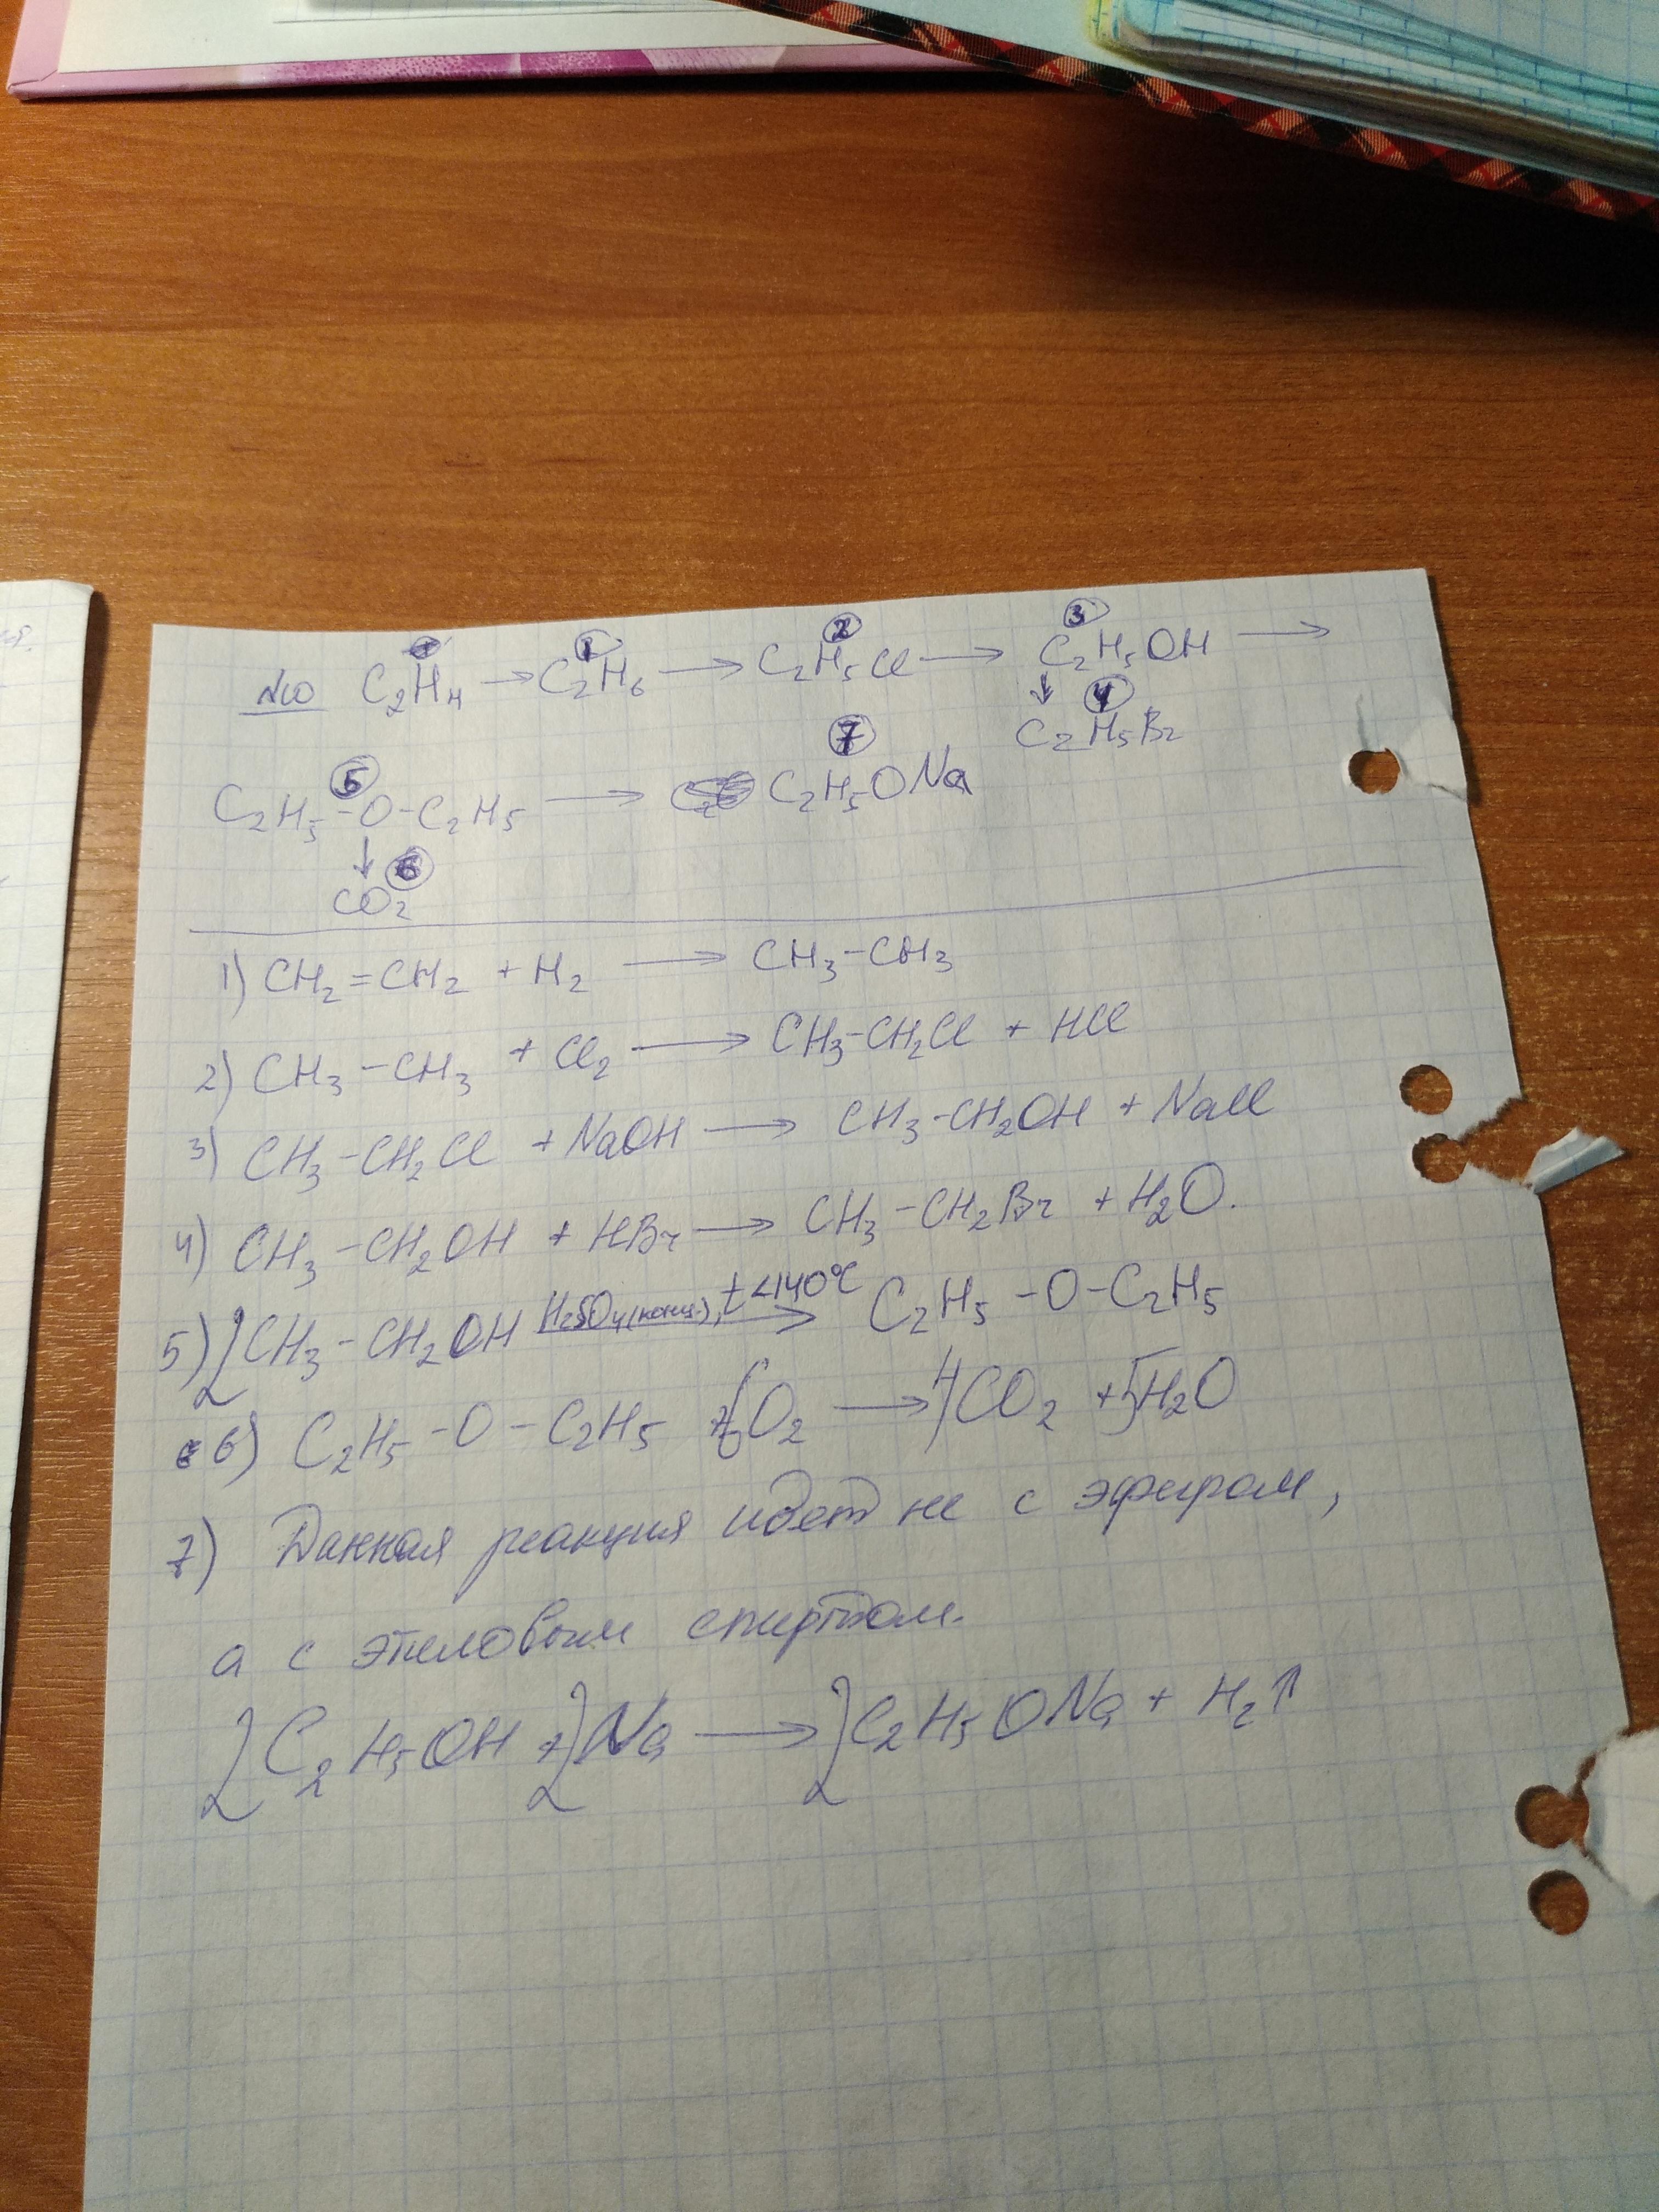 №10 C₂H₄ → C₂H₆ ① → C₂H₅Cl ② → C₂H₅OH ③ →
↓ ④
C₂H₅Br
C₂H₅-O-C₂H₅ ⑤ → C₂H₅ONa ⑦
↓ ⑥
CO₂
1) CH₂=CH₂ + H₂ → CH₃-CH₃
2) CH₃-CH₃ + Cl₂ → CH₃-CH₂Cl + HCl
3) CH₃-CH₂Cl + NaOH → CH₃-CH₂OH + NaCl
4) CH₃-CH₂OH + HBr → CH₃-CH₂Br + H₂O.
5) 2CH₃-CH₂OH H₂SO₄(конц.), t<140°C → C₂H₅-O-C₂H₅
6) C₂H₅-O-C₂H₅ + 6O₂ → 4CO₂ + 5H₂O
7) Данная реакция идет не с эфиром,
а с этиловым спиртом.
2C₂H₅OH + 2Na → 2C₂H₅ONa + H₂↑